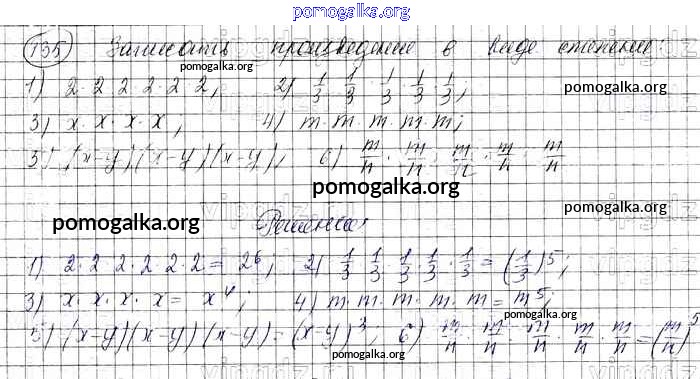 pomogalka.org
135) Записать произведение в виде степени:
pomogalka.org
1) 2·2·2·2·2·2, 2) 1/3·1/3·1/3·1/3·1/3; pomogalka.org
3) x·x·x·x; 4) m·m·m·m·m;
5) (x-y)(x-y)(x-y), 6) m/n·m/n·m/n·m/n·m/n
pomogalka.org
pomogalka.org pomogalka.org
Решение
1) 2·2·2·2·2·2 = 2⁶, 2) 1/3·1/3·1/3·1/3·1/3 = (1/3)⁵;
pomogalka.org
3) x·x·x·x = x⁴; 4) m·m·m·m·m = m⁵;
5) (x-y)(x-y)(x-y) = (x-y)³; 6) m/n·m/n·m/n·m/n·m/n = (m/n)⁵
pomogalka.org